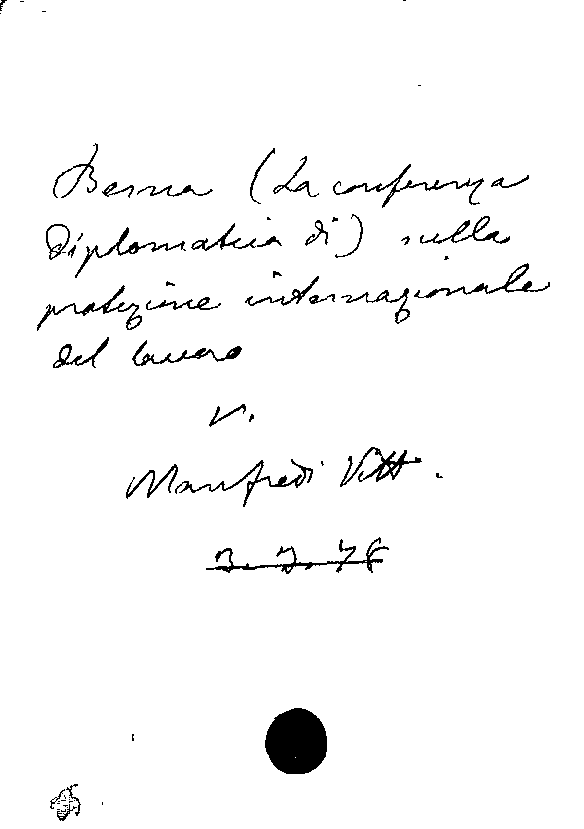 Berna (La conferenza
diplomatica di) sulla
protezione internazionale
del lavoro
V.
Manfredi Vitt.
3.7.76